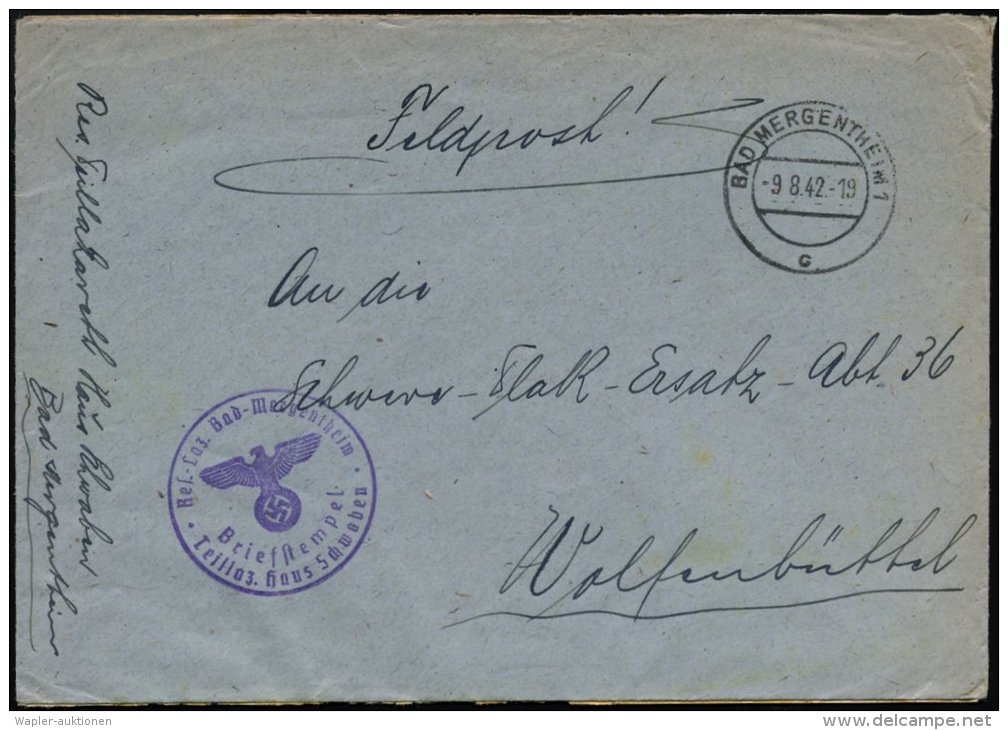 Feldpost!
BAD MERGENTHEIM 1
-9 8.42.-19
c
An die
Schwere-Flak-Ersatz-Abt. 36
Wolfenbüttel
Res. Teillazarett Haus Schwaben
Bad Mergentheim
Res.-Laz. Bad-Mergentheim
Briefstempel
Teillaz. Haus Schwaben
Wapler-auktionen
delcampe.net